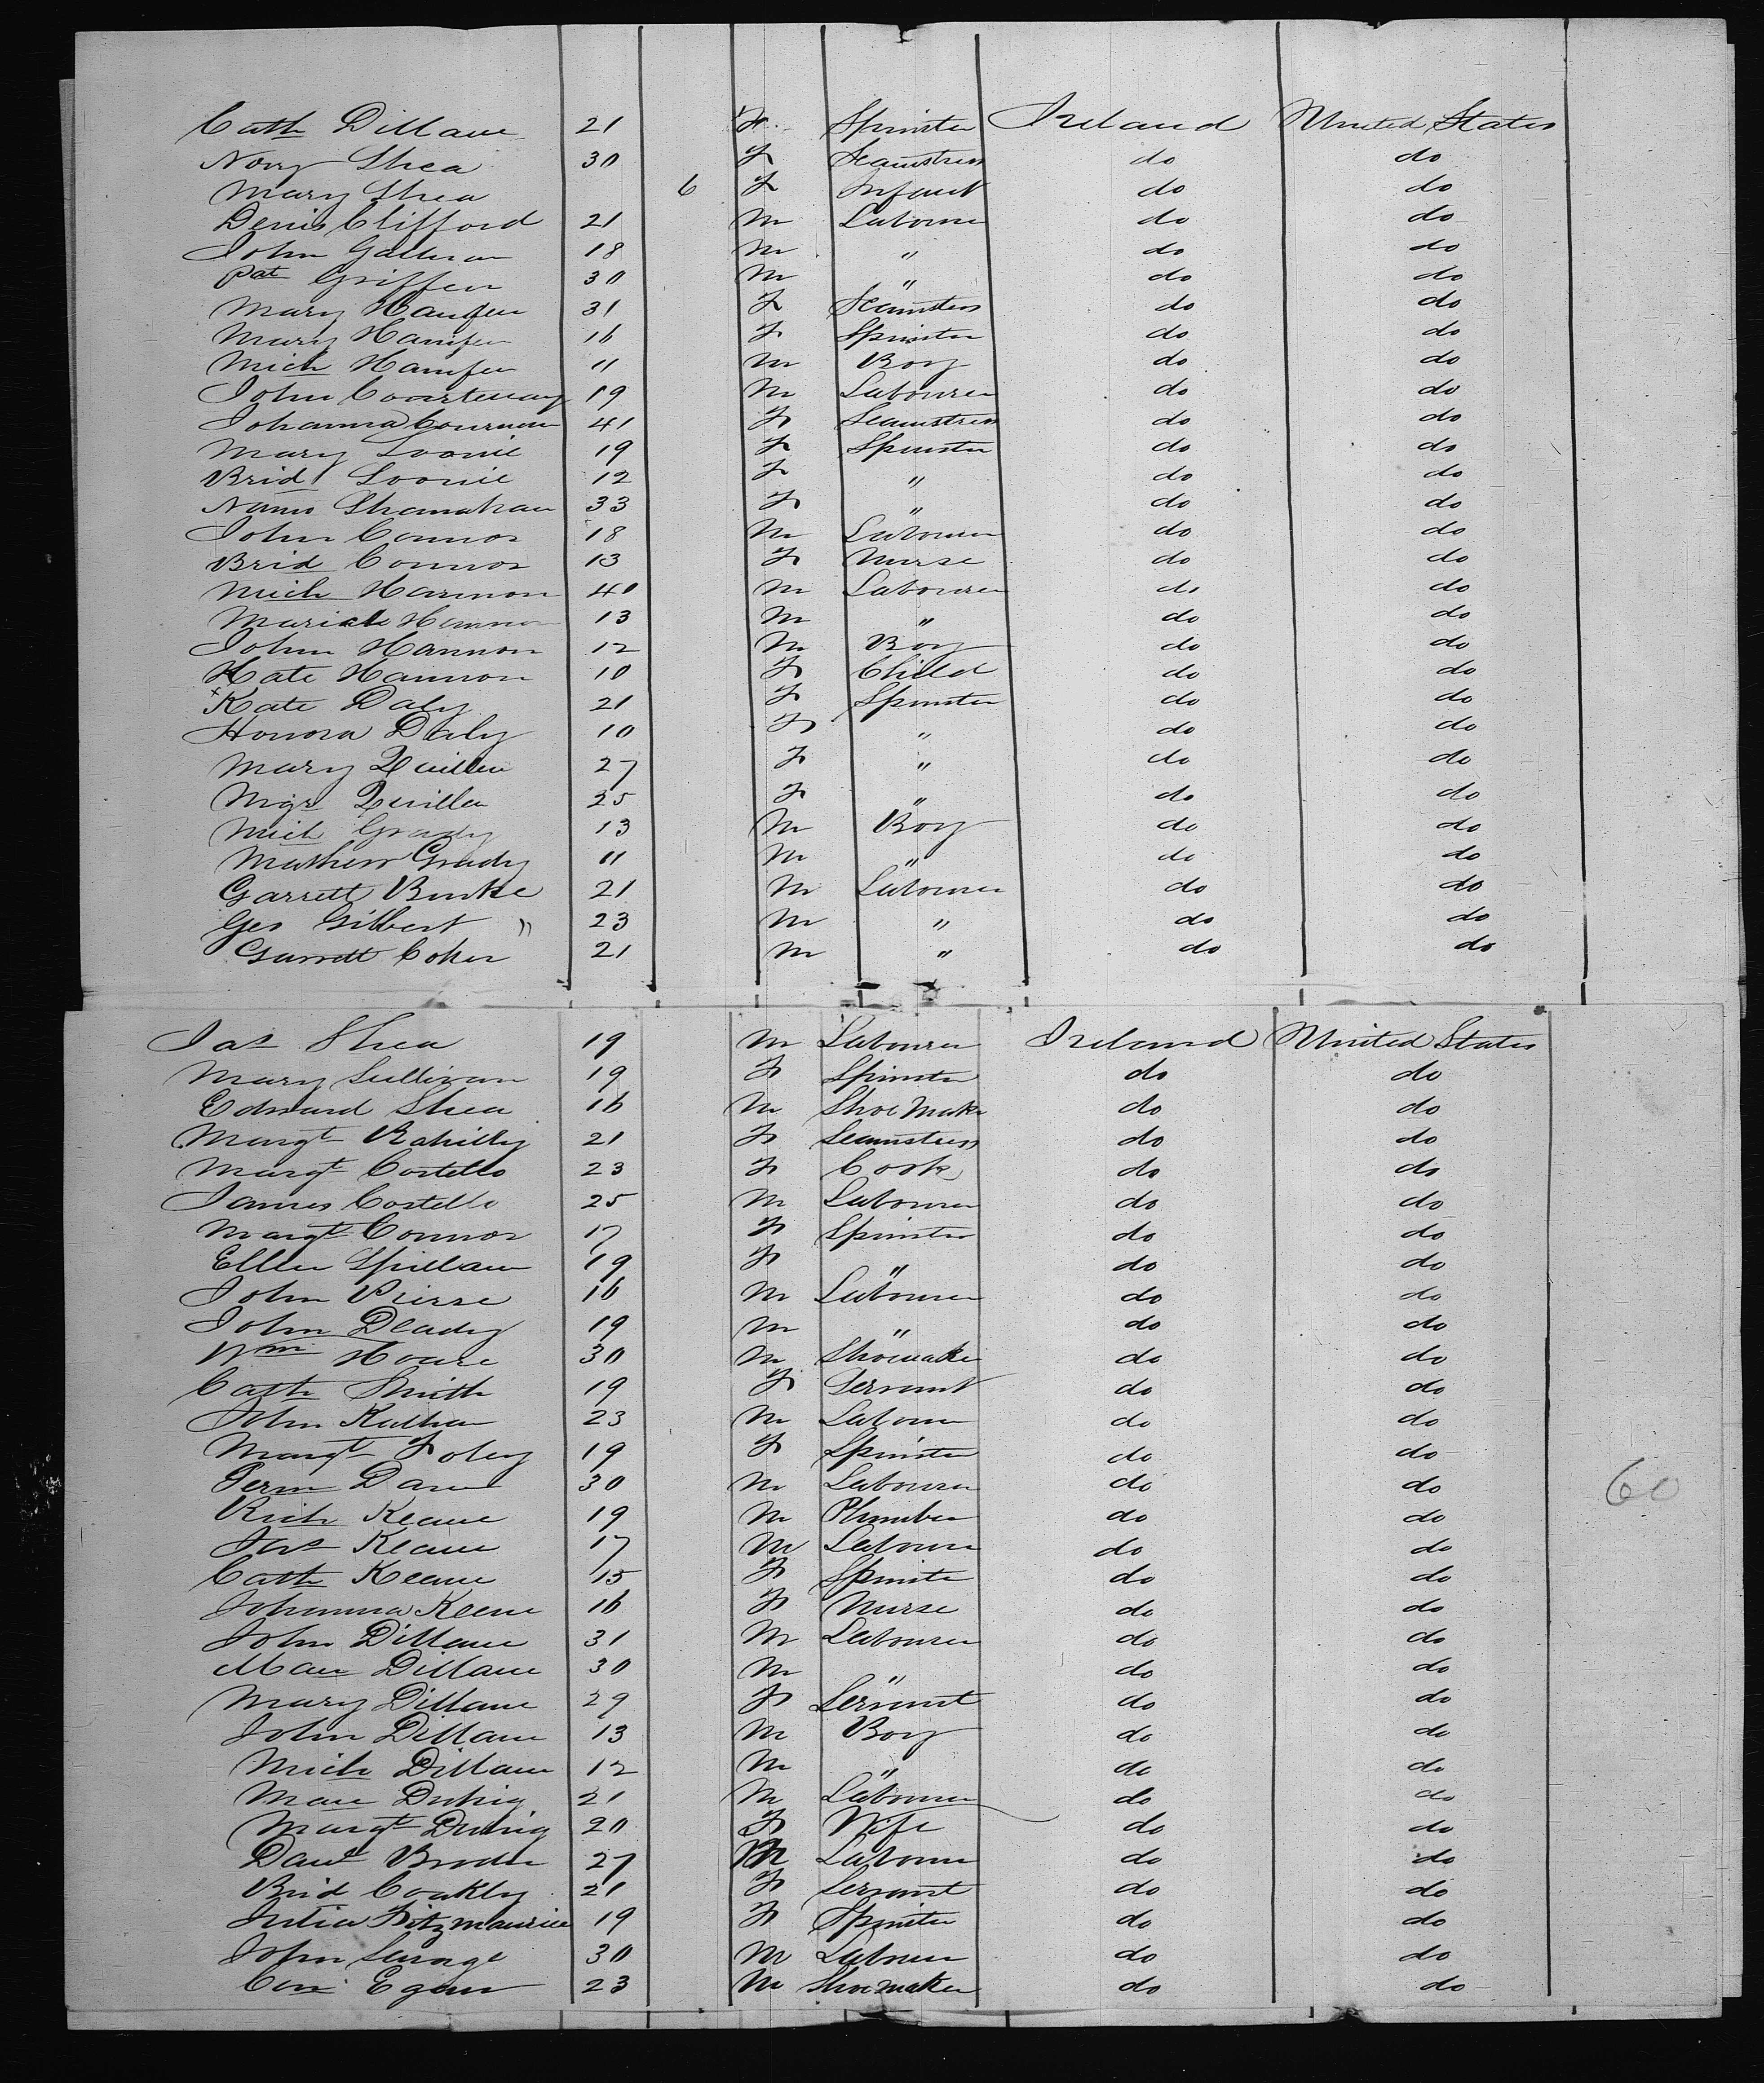 Cath Dillane 21 F. Spinster Ireland United States
Nory Shea 30 F Seamstress do do
Mary Shea 6 F Infant do do
Denis Clifford 21 M Labourer do do
John 18 M " do do
Pat Griffen 30 M " do do
Mary Hanifen 31 F Seamstress do do
Mary Hanifen 16 F Spinster do do
Mich Hanifen 11 M Boy do do
John Courtenay 19 M Labourer do do
Johanna 41 F Seamstress do do
Mary Loonie 19 F Spinster do do
Brid Loonie 12 F " do do
Nano Shanahan 33 F " do do
John Connor 18 M Labourer do do
Brid Connor 13 F Nurse do do
Mich Hannon 40 M Labourer do do
Hannon 13 M " do do
John Hannon 12 M Boy do do
Kate Hannon 10 F Child do do
x Kate Daly 21 F Spinster do do
Honora Daly 10 F " do do
Mary Quillen 27 F " do do
Mgr Quillen 25 F " do do
Mich Grady 13 M Boy do do
Mathew Grady 11 M " do do
Garrett Burke 21 M Labourer do do
Geo Gilbert " 23 M " do do
Garrett Coker 21 M " do do
Jas Shea 19 M Labourer Ireland United States
Mary Sullivan 19 F Spinster do do
Edward Shea 16 M Shoe Maker do do
Margt Rahilly 21 F Seamstress do do
Margt Costello 23 F Cook do do
James Costello 25 M Labourer do do
Margt Connor 17 F Spinster do do
Ellen Spillane 19 F " do do
John Pierse 16 M Labourer do do
John Deady 19 M " do do
Wm Hoare 30 M Shoemaker do do
Cath Smith 19 F Servant do do
John 23 M Labourer do do
Margt Foley 19 F Spinster do do
30 M Labourer do do
Rich Keane 19 M Plumber do do
Jas Keane 17 M Labourer do do
Cath Keane 15 F Spinster do do
Johanna Keane 16 F Nurse do do
John Dillane 31 M Labourer do do
Mau Dillane 30 M " do do
Mary Dillane 29 F Servant do do
John Dillane 13 M Boy do do
Mich Dillane 12 M " do do
Mau Duhig 21 M Labourer do do
Margt Duhig 20 F Wife do do
Danl Broder 27 M Labourer do do
Brid Coakley 21 F Servant do do
Julia Fitzmaurice 19 F Spinster do do
John Savage 30 M Labourer do do
Con Egan 23 M Shoemaker do do
60